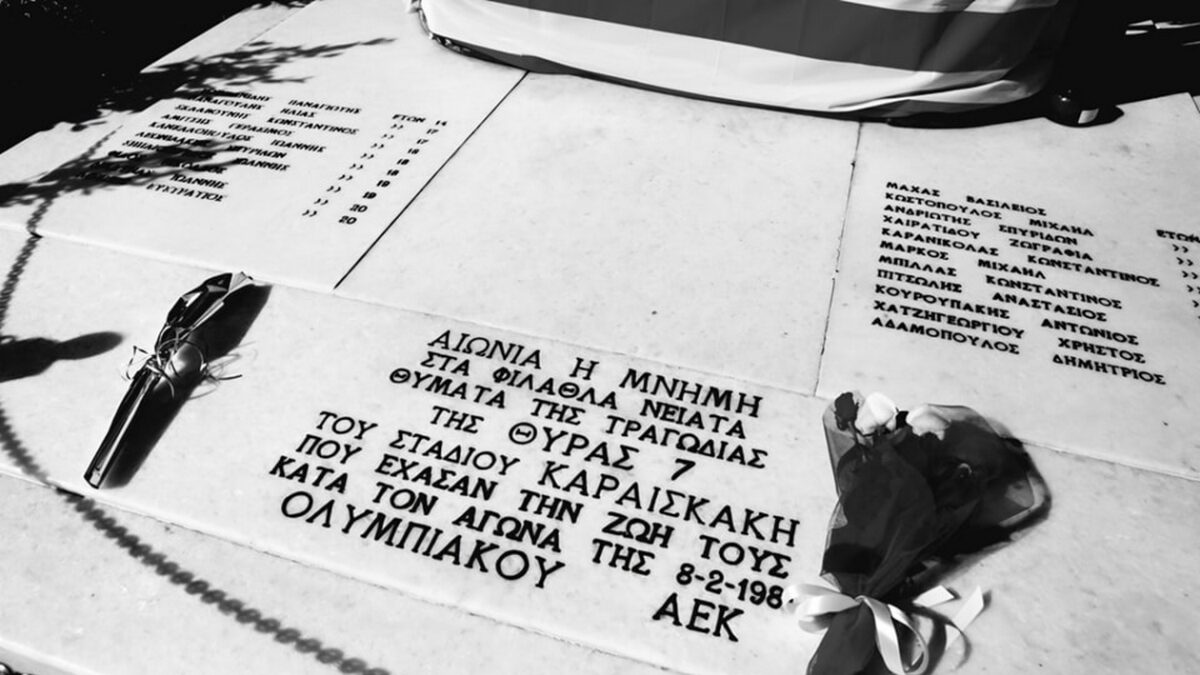 ΠΑΝΑΓΙΩΤΗΣ ΕΤΩΝ 14
ΗΛΙΑΣ >> 17
ΚΩΝΣΤΑΝΤΙΝΟΣ >> 17
ΓΕΡΑΣΙΜΟΣ >> 18
ΚΑΝΕΛΛΟΠΟΥΛΟΣ ΙΩΑΝΝΗΣ >> 18
ΣΠΥΡΙΔΩΝ >> 18
ΙΩΑΝΝΗΣ >> 19
>> 19
ΙΩΑΝΝΗΣ >> 20
ΕΥΣΤΡΑΤΙΟΣ >> 20
ΜΑΧΑΣ ΒΑΣΙΛΕΙΟΣ
ΚΩΣΤΟΠΟΥΛΟΣ ΜΙΧΑΗΛ ΕΤΩΝ
ΑΝΔΡΙΩΤΗΣ ΣΠΥΡΙΔΩΝ >>
ΧΑΙΡΑΤΙΔΟΥ ΖΩΓΡΑΦΙΑ >>
ΚΑΡΑΝΙΚΟΛΑΣ ΚΩΝΣΤΑΝΤΙΝΟΣ >>
ΜΑΡΚΟΣ ΜΙΧΑΗΛ >>
ΜΠΙΛΛΑΣ ΚΩΝΣΤΑΝΤΙΝΟΣ
ΠΙΤΣΩΛΗΣ ΑΝΑΣΤΑΣΙΟΣ
ΚΟΥΡΟΥΠΑΚΗΣ ΑΝΤΩΝΙΟΣ
ΧΑΤΖΗΓΕΩΡΓΙΟΥ ΧΡΗΣΤΟΣ
ΑΔΑΜΟΠΟΥΛΟΣ ΔΗΜΗΤΡΙΟΣ
ΑΙΩΝΙΑ Η ΜΝΗΜΗ
ΣΤΑ ΦΙΛΑΘΛΑ ΝΕΙΑΤΑ
ΘΥΜΑΤΑ ΤΗΣ ΤΡΑΓΩΔΙΑΣ
ΤΗΣ ΘΥΡΑΣ 7
ΤΟΥ ΣΤΑΔΙΟΥ ΚΑΡΑΙΣΚΑΚΗ
ΠΟΥ ΕΧΑΣΑΝ ΤΗΝ ΖΩΗ ΤΟΥΣ
ΚΑΤΑ ΤΟΝ ΑΓΩΝΑ ΤΗΣ 8-2-198
ΟΛΥΜΠΙΑΚΟΥ ΑΕΚ